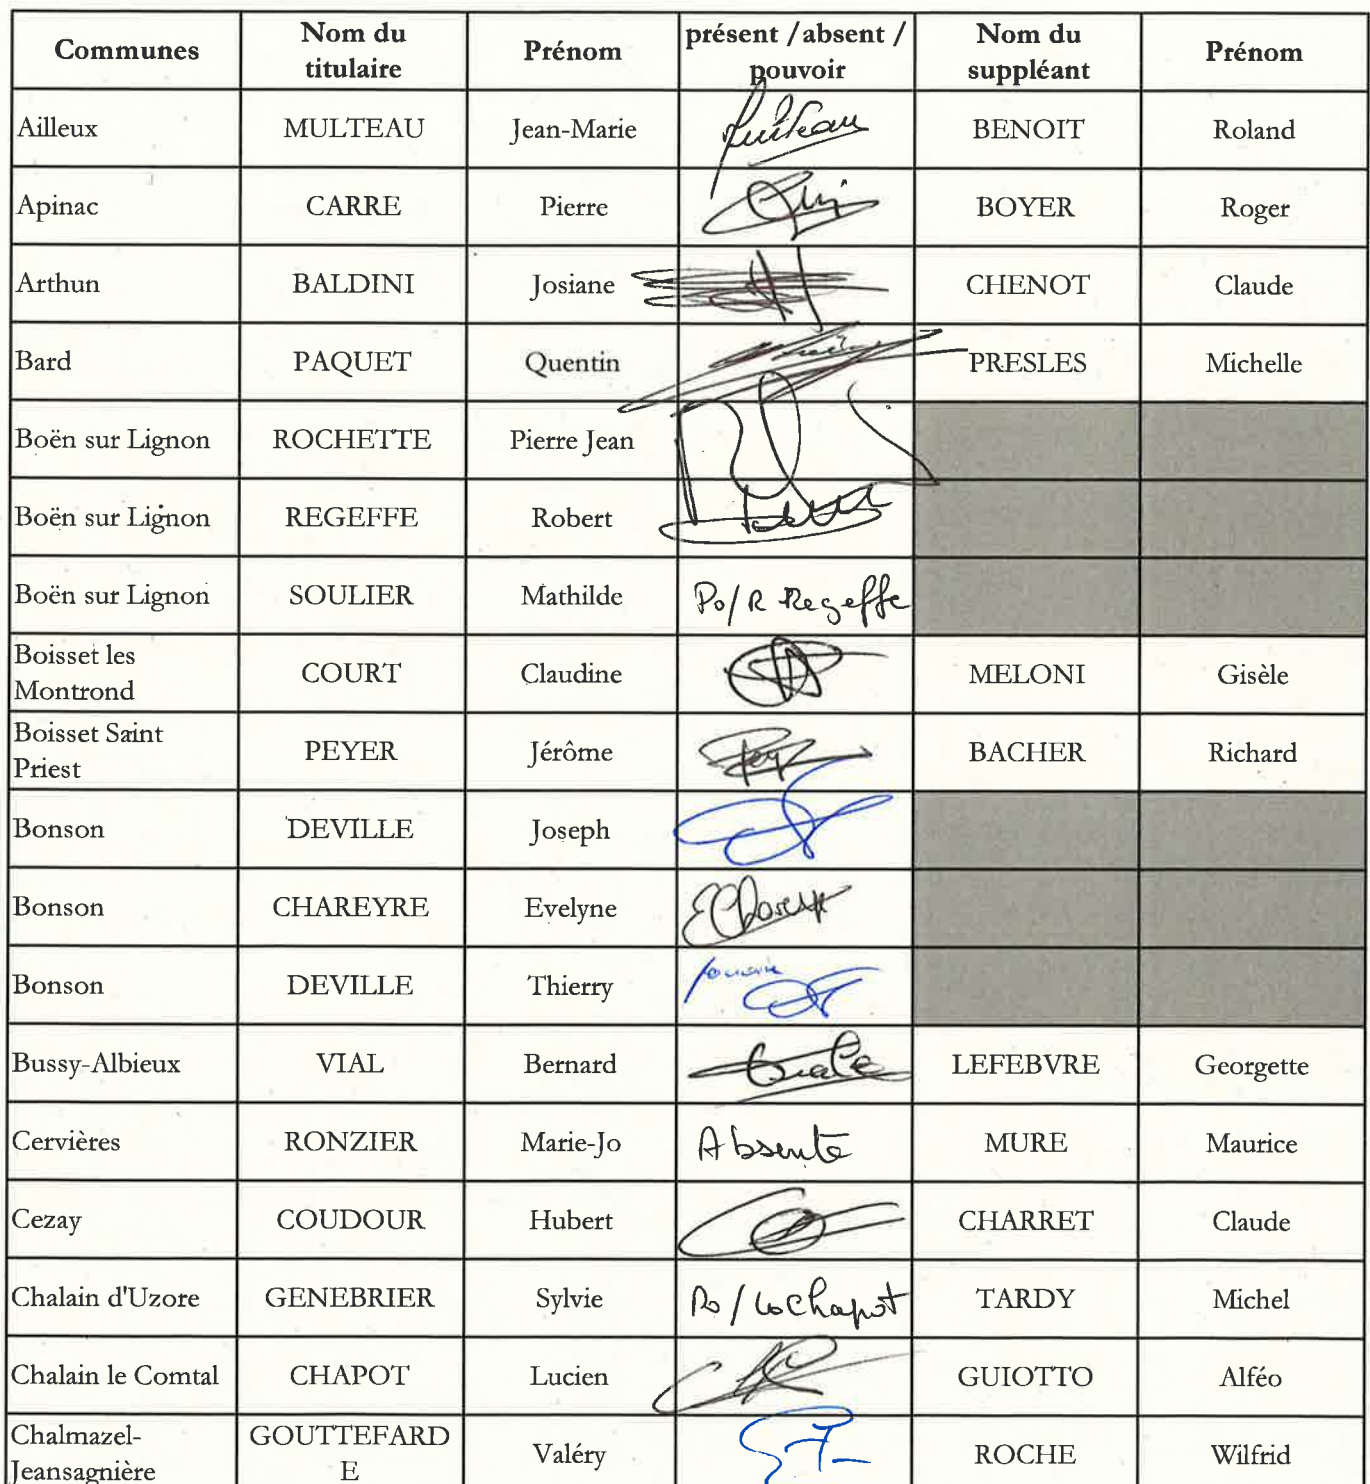 Communes Nom du titulaire Prénom présent / absent / pouvoir Nom du suppléant Prénom
Ailleux MULTEAU Jean-Marie BENOIT Roland
Apinac CARRE Pierre BOYER Roger
Arthun BALDINI Josiane CHENOT Claude
Bard PAQUET Quentin PRESLES Michelle
Boën sur Lignon ROCHETTE Pierre Jean
Boën sur Lignon REGEFFE Robert
Boën sur Lignon SOULIER Mathilde Po/R Regeffe
Boisset les Montrond COURT Claudine MELONI Gisèle
Boisset Saint Priest PEYER Jérôme BACHER Richard
Bonson DEVILLE Joseph
Bonson CHAREYRE Evelyne
Bonson DEVILLE Thierry pouvoir
Bussy-Albieux VIAL Bernard LEFEBVRE Georgette
Cervières RONZIER Marie-Jo Absente MURE Maurice
Cezay COUDOUR Hubert CHARRET Claude
Chalain d'Uzore GENEBRIER Sylvie Po/ Chapot TARDY Michel
Chalain le Comtal CHAPOT Lucien GUIOTTO Alféo
Chalmazel-Jeansagnière GOUTTEFARDE Valéry ROCHE Wilfrid